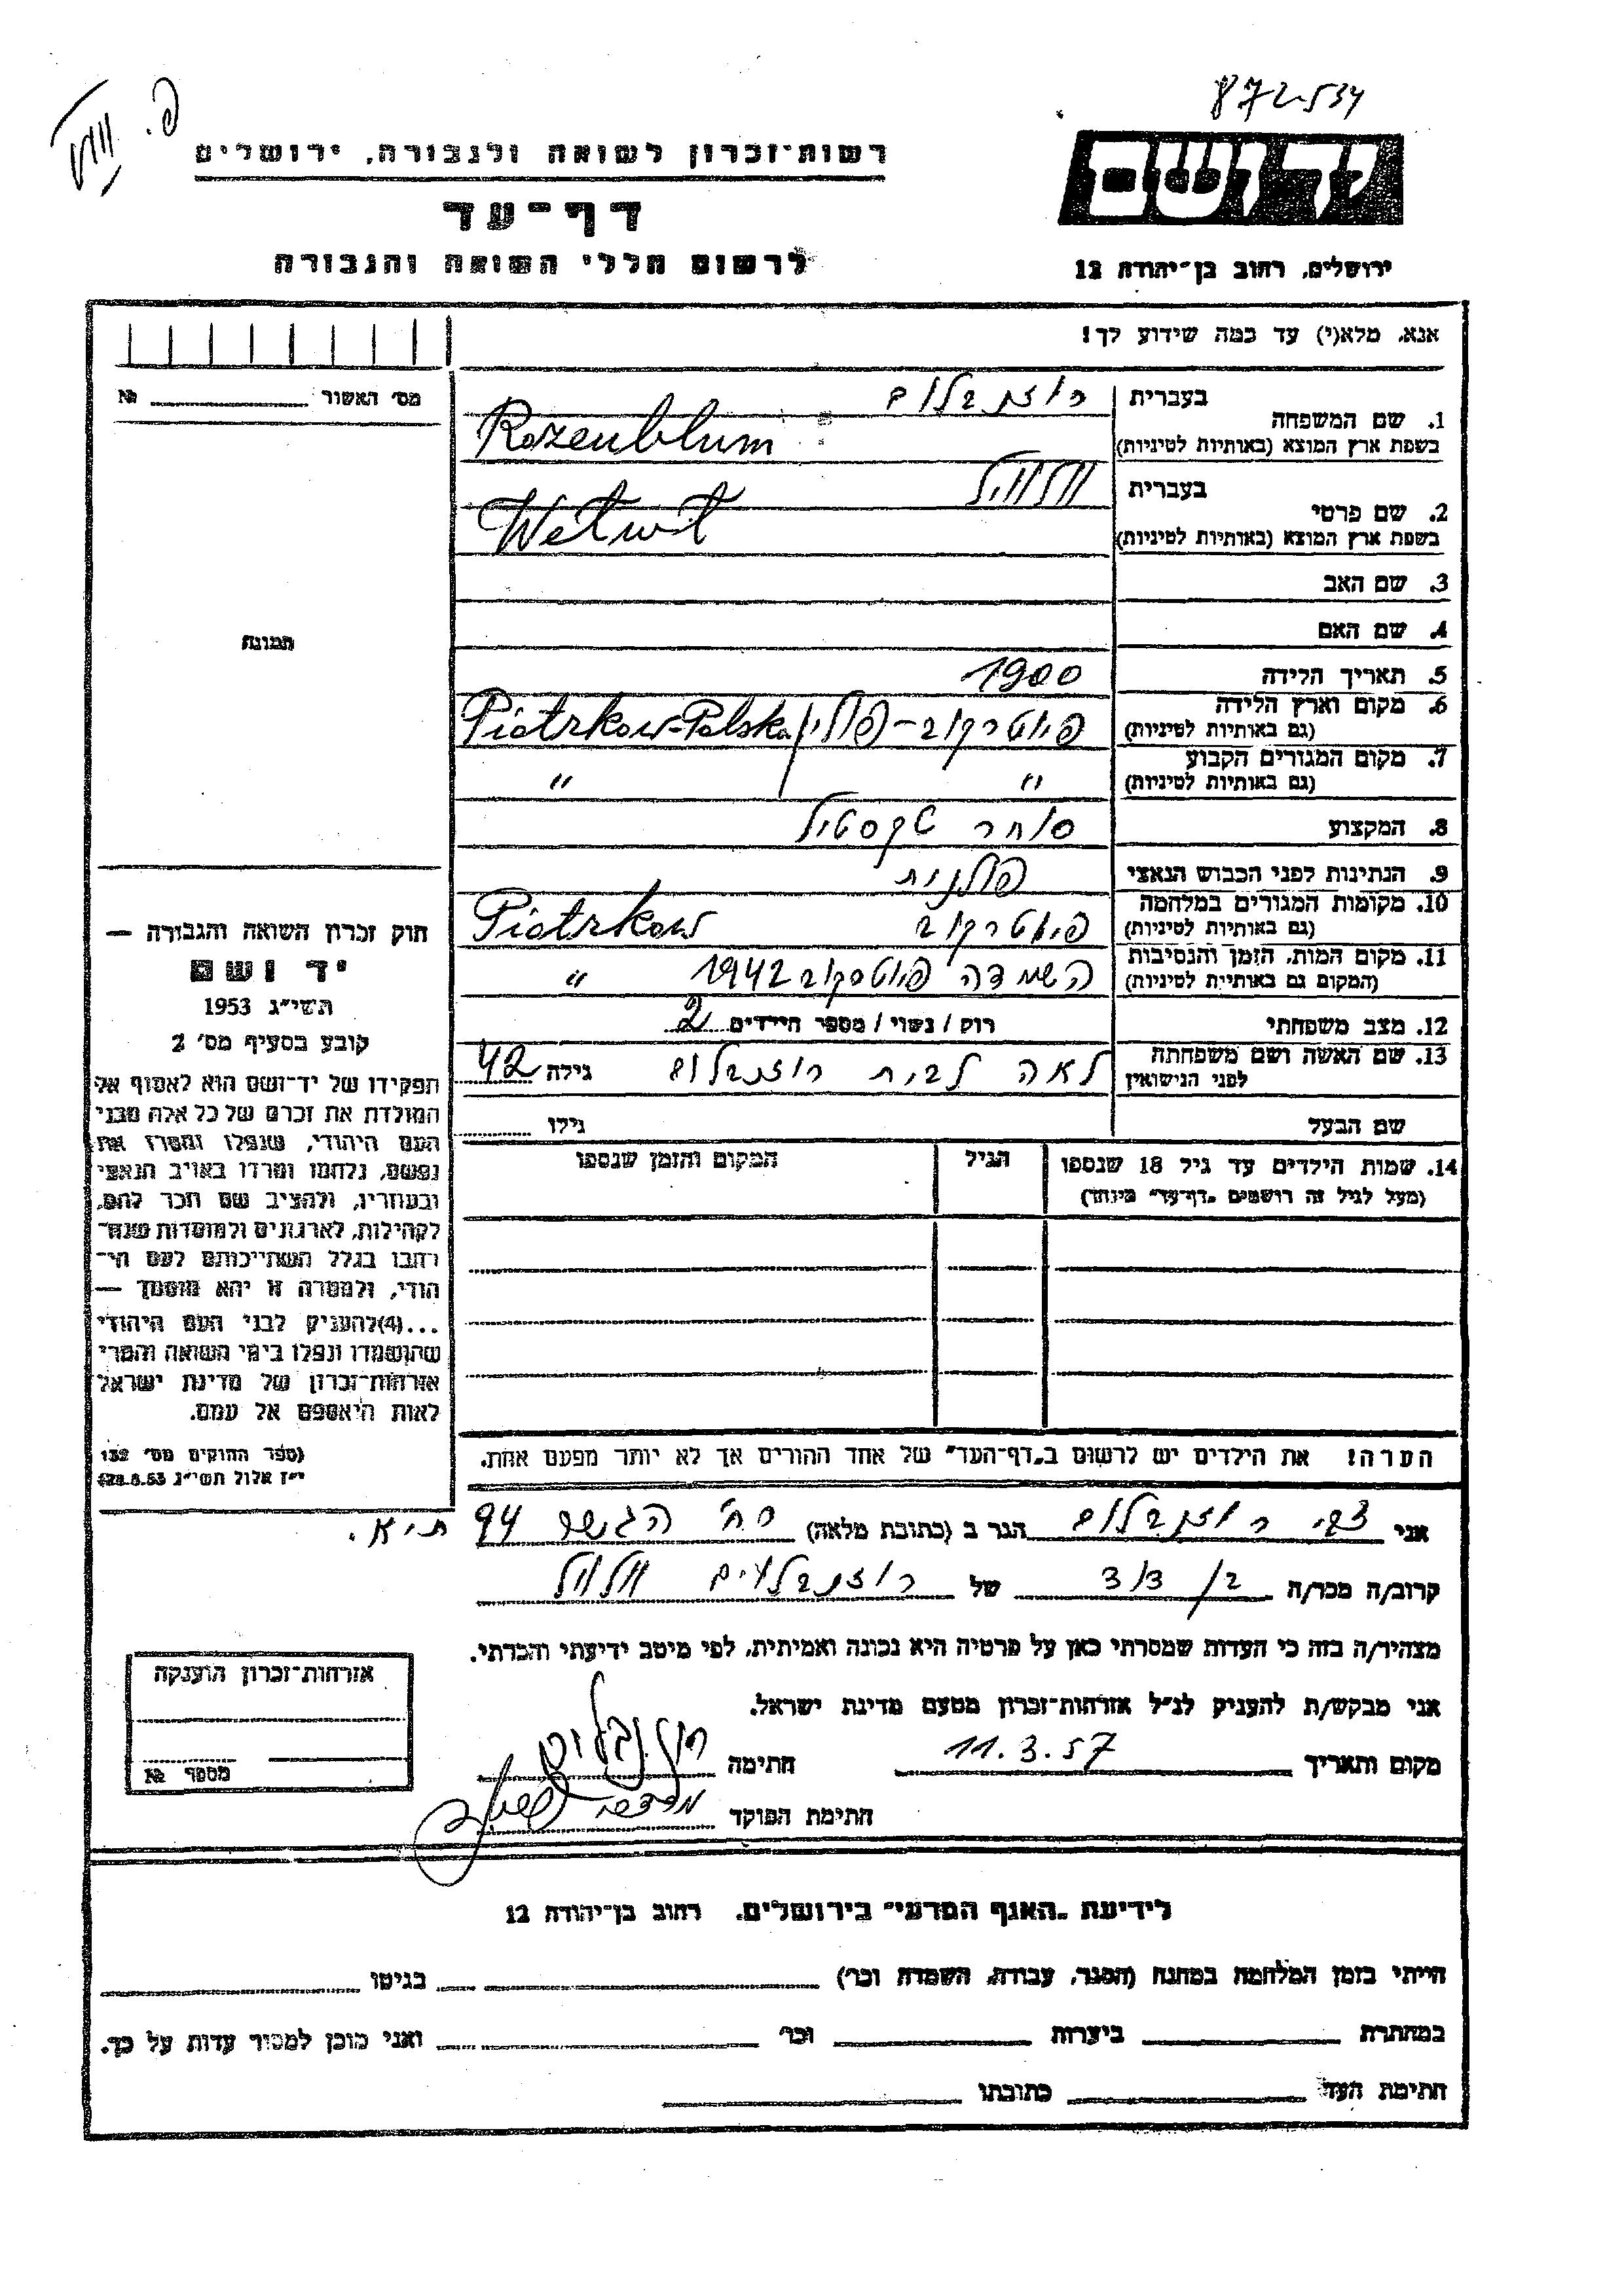 872534
פ.
רשות־זכרון לשואה ולגבורה, ירושלים
יד ושם
דף־עד
לרשום חללי השואה והגבורה
ירושלים, רחוב בן־יהודה 12
אנא, מלא(י) עד כמה שידוע לך!
מס׳ האשור № 
1. שם המשפחה
בעברית רוזנבלום
בשפת ארץ המוצא (באותיות לטיניות) Rozenblum
2. שם פרטי
בעברית וולוויל
בשפת ארץ המוצא (באותיות לטיניות)
3. שם האב
4. שם האם
תמונה
5. תאריך הלידה 1900
6. מקום וארץ הלידה
(גם באותיות לטיניות) פיוטרקוב – פולין / Piotrkow-Polska
7. מקום המגורים הקבוע
(גם באותיות לטיניות) " / "
8. המקצוע סוחר טקסטיל
9. הנתינות לפני הכבוש הנאצי פולנית
10. מקומות המגורים במלחמה
(גם באותיות לטיניות) פיוטרקוב Piotrkow
11. מקום המות, הזמן והנסיבות
(המקום גם באותיות לטיניות) השמדה פיוטרקוב 1942 "
12. מצב משפחתי רוק / נשוי / מספר הילדים 2
13. שם האשה ושם משפחתה
לפני הנישואין לאה לבית רוזנבלום גילה 42
שם הבעל גילו
14. שמות הילדים עד גיל 18 שנספו הגיל המקום והזמן שנספו
(מעל לגיל זה רושמים „דף־עד״ מיוחד)
חוק זכרון השואה והגבורה —
יד ושם
תשי״ג 1953
קובע בסעיף מס׳ 2
תפקידו של יד־ושם הוא לאסוף אל
המולדת את זכרם של כל אלה מבני
העם היהודי, שנפלו ומסרו את
נפשם, נלחמו ומרדו באויב הנאצי
ובעוזריו, ולהציב שם וזכר להם,
לקהילות, לארגונים ולמוסדות שנח־
רבו בגלל השתייכותם לעם הי־
הודי, ולמטרה זו יהא מוסמך —
...(4)להעניק לבני העם היהודי
שהושמדו ונפלו בימי השואה והמרי
אזרחות־זכרון של מדינת ישראל
לאות היאספם אל עמם.
(ספר החוקים מס׳ 132
י״ז אלול תשי״ג 28.8.53)
הערה! את הילדים יש לרשום ב„דף־העד״ של אחד ההורים אך לא יותר מפעם אחת.
אני צבי רוזנבלום הגר ב (כתובת מלאה) רח׳ הגשר 94 ת״א.
קרוב/ה מכר/ה ב/דוד של רוזנבלום
מצהיר/ה בזה כי העדות שמסרתי כאן על פרטיה היא נכונה ואמיתית, לפי מיטב ידיעתי והכרתי.
אני מבקש/ת להעניק לנ״ל אזרחות־זכרון מטעם מדינת ישראל.
מקום ותאריך 11.3.57 חתימה רוזנבלום
חתימת הפוקד
אזרחות־זכרון הוענקה
מספר №
לידיעת „האגף המדעי״ בירושלים, רחוב בן־יהודה 12
הייתי בזמן המלחמה במחנה (הסגר, עבודה, השמדה וכו׳) בגיטו
במחתרת ביערות וכו׳ ואני מוכן למסור עדות על כך.
חתימת העד כתובתו